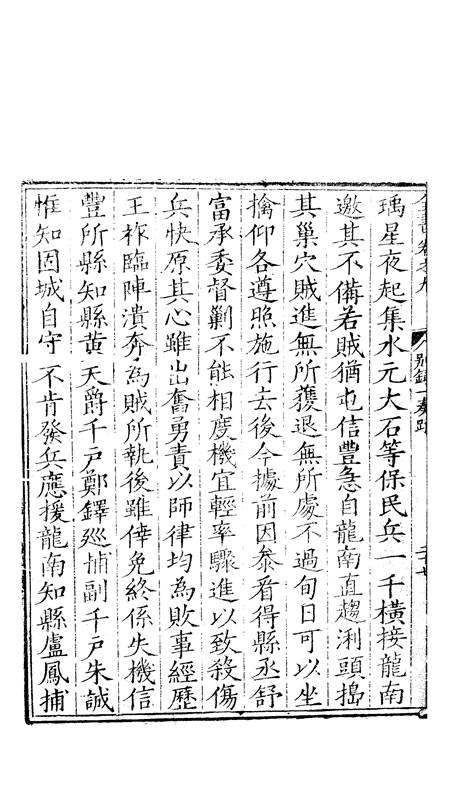 瑀星夜起集水元大石等保民兵一千橫接龍南
邀其不備若賊猶屯信豐急自龍南直趨浰頭搗
其巢穴賊進無所獲退無所處不過旬日可以坐
擒仰各遵照施行去後今據前因叅看得縣丞舒
富承委督勦不能相度機宜輕率驟進以致殺傷
兵快原其心雖出奮勇責以師律均為敗事經歷
王祚臨陣潰奔為賊所執後雖倖免終係失機信
豐所縣知縣黃天爵千戶鄭鐸廵捕副千戶朱誠
惟知固城自守不肯發兵應援龍南知縣盧鳳捕